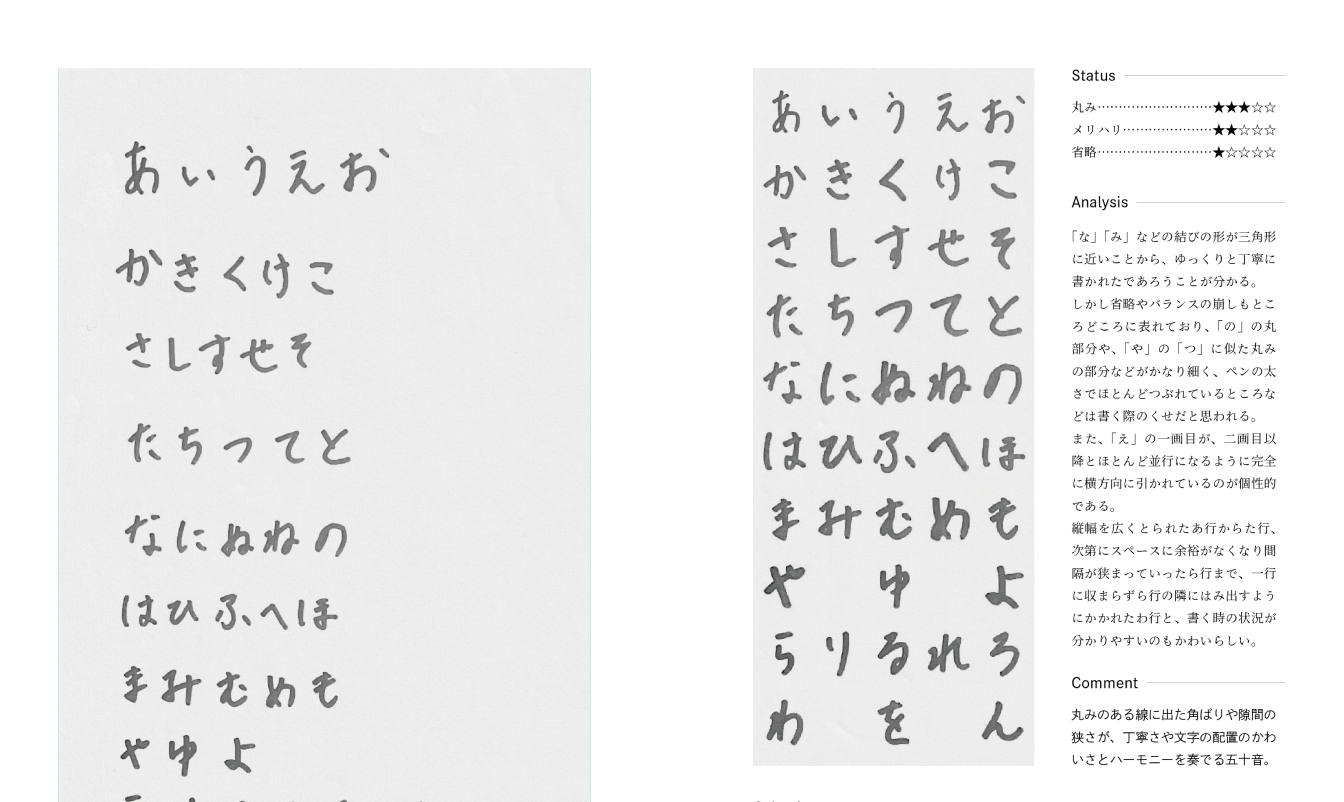 あいうえお
かきくけこ
さしすせそ
たちつてと
なにぬねの
はひふへほ
まみむめも
やゆよ
あいうえお
かきくけこ
さしすせそ
たちつてと
なにぬねの
はひふへほ
まみむめも
や ゆ よ
らりるれろ
わ を ん
Status
丸み…………………………★★★☆☆
メリハリ……………………★★☆☆☆
省略…………………………★☆☆☆☆
Analysis
「な」「み」などの結びの形が三角形
に近いことから、ゆっくりと丁寧に
書かれたであろうことが分かる。
しかし省略やバランスの崩しもとこ
ろどころに表れており、「の」の丸
部分や、「や」の「つ」に似た丸み
の部分などがかなり細く、ペンの太
さでほとんどつぶれているところな
どは書く際のくせだと思われる。
また、「え」の一画目が、二画目以
降とほとんど並行になるように完全
に横方向に引かれているのが個性的
である。
縦幅を広くとられたあ行からた行、
次第にスペースに余裕がなくなり間
隔が狭まっていったら行まで、一行
に収まらずら行の隣にはみ出すよう
にかかれたわ行と、書く時の状況が
分かりやすいのもかわいらしい。
Comment
丸みのある線に出た角ばりや隙間の
狭さが、丁寧さや文字の配置のかわ
いさとハーモニーを奏でる五十音。